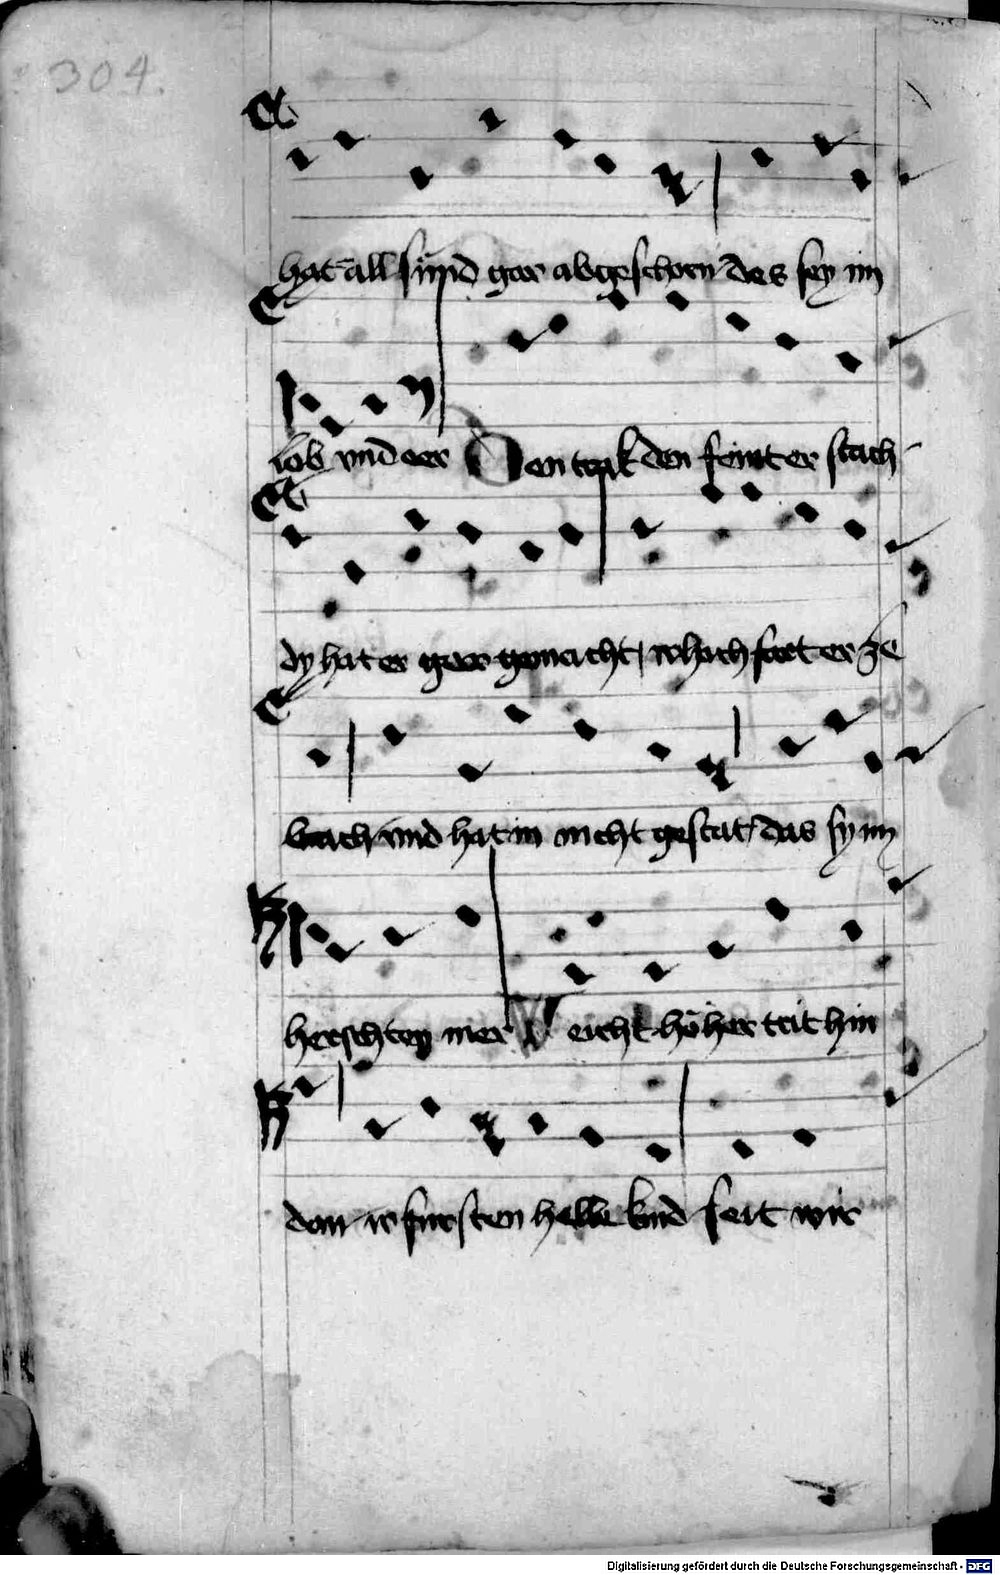 304.
hat all sünd gar abgeschorn des sey im
lob vnd eer Den trak den feint er stach
dy hat er gar gemacht, ir hochfart er ze
brach vnd hat in nicht gestat, das sy im
herschten mer Weicht höher trit hin
dan ir fursten helle kind seit wir
Digitalisierung gefördert durch die Deutsche Forschungsgemeinschaft - DFG